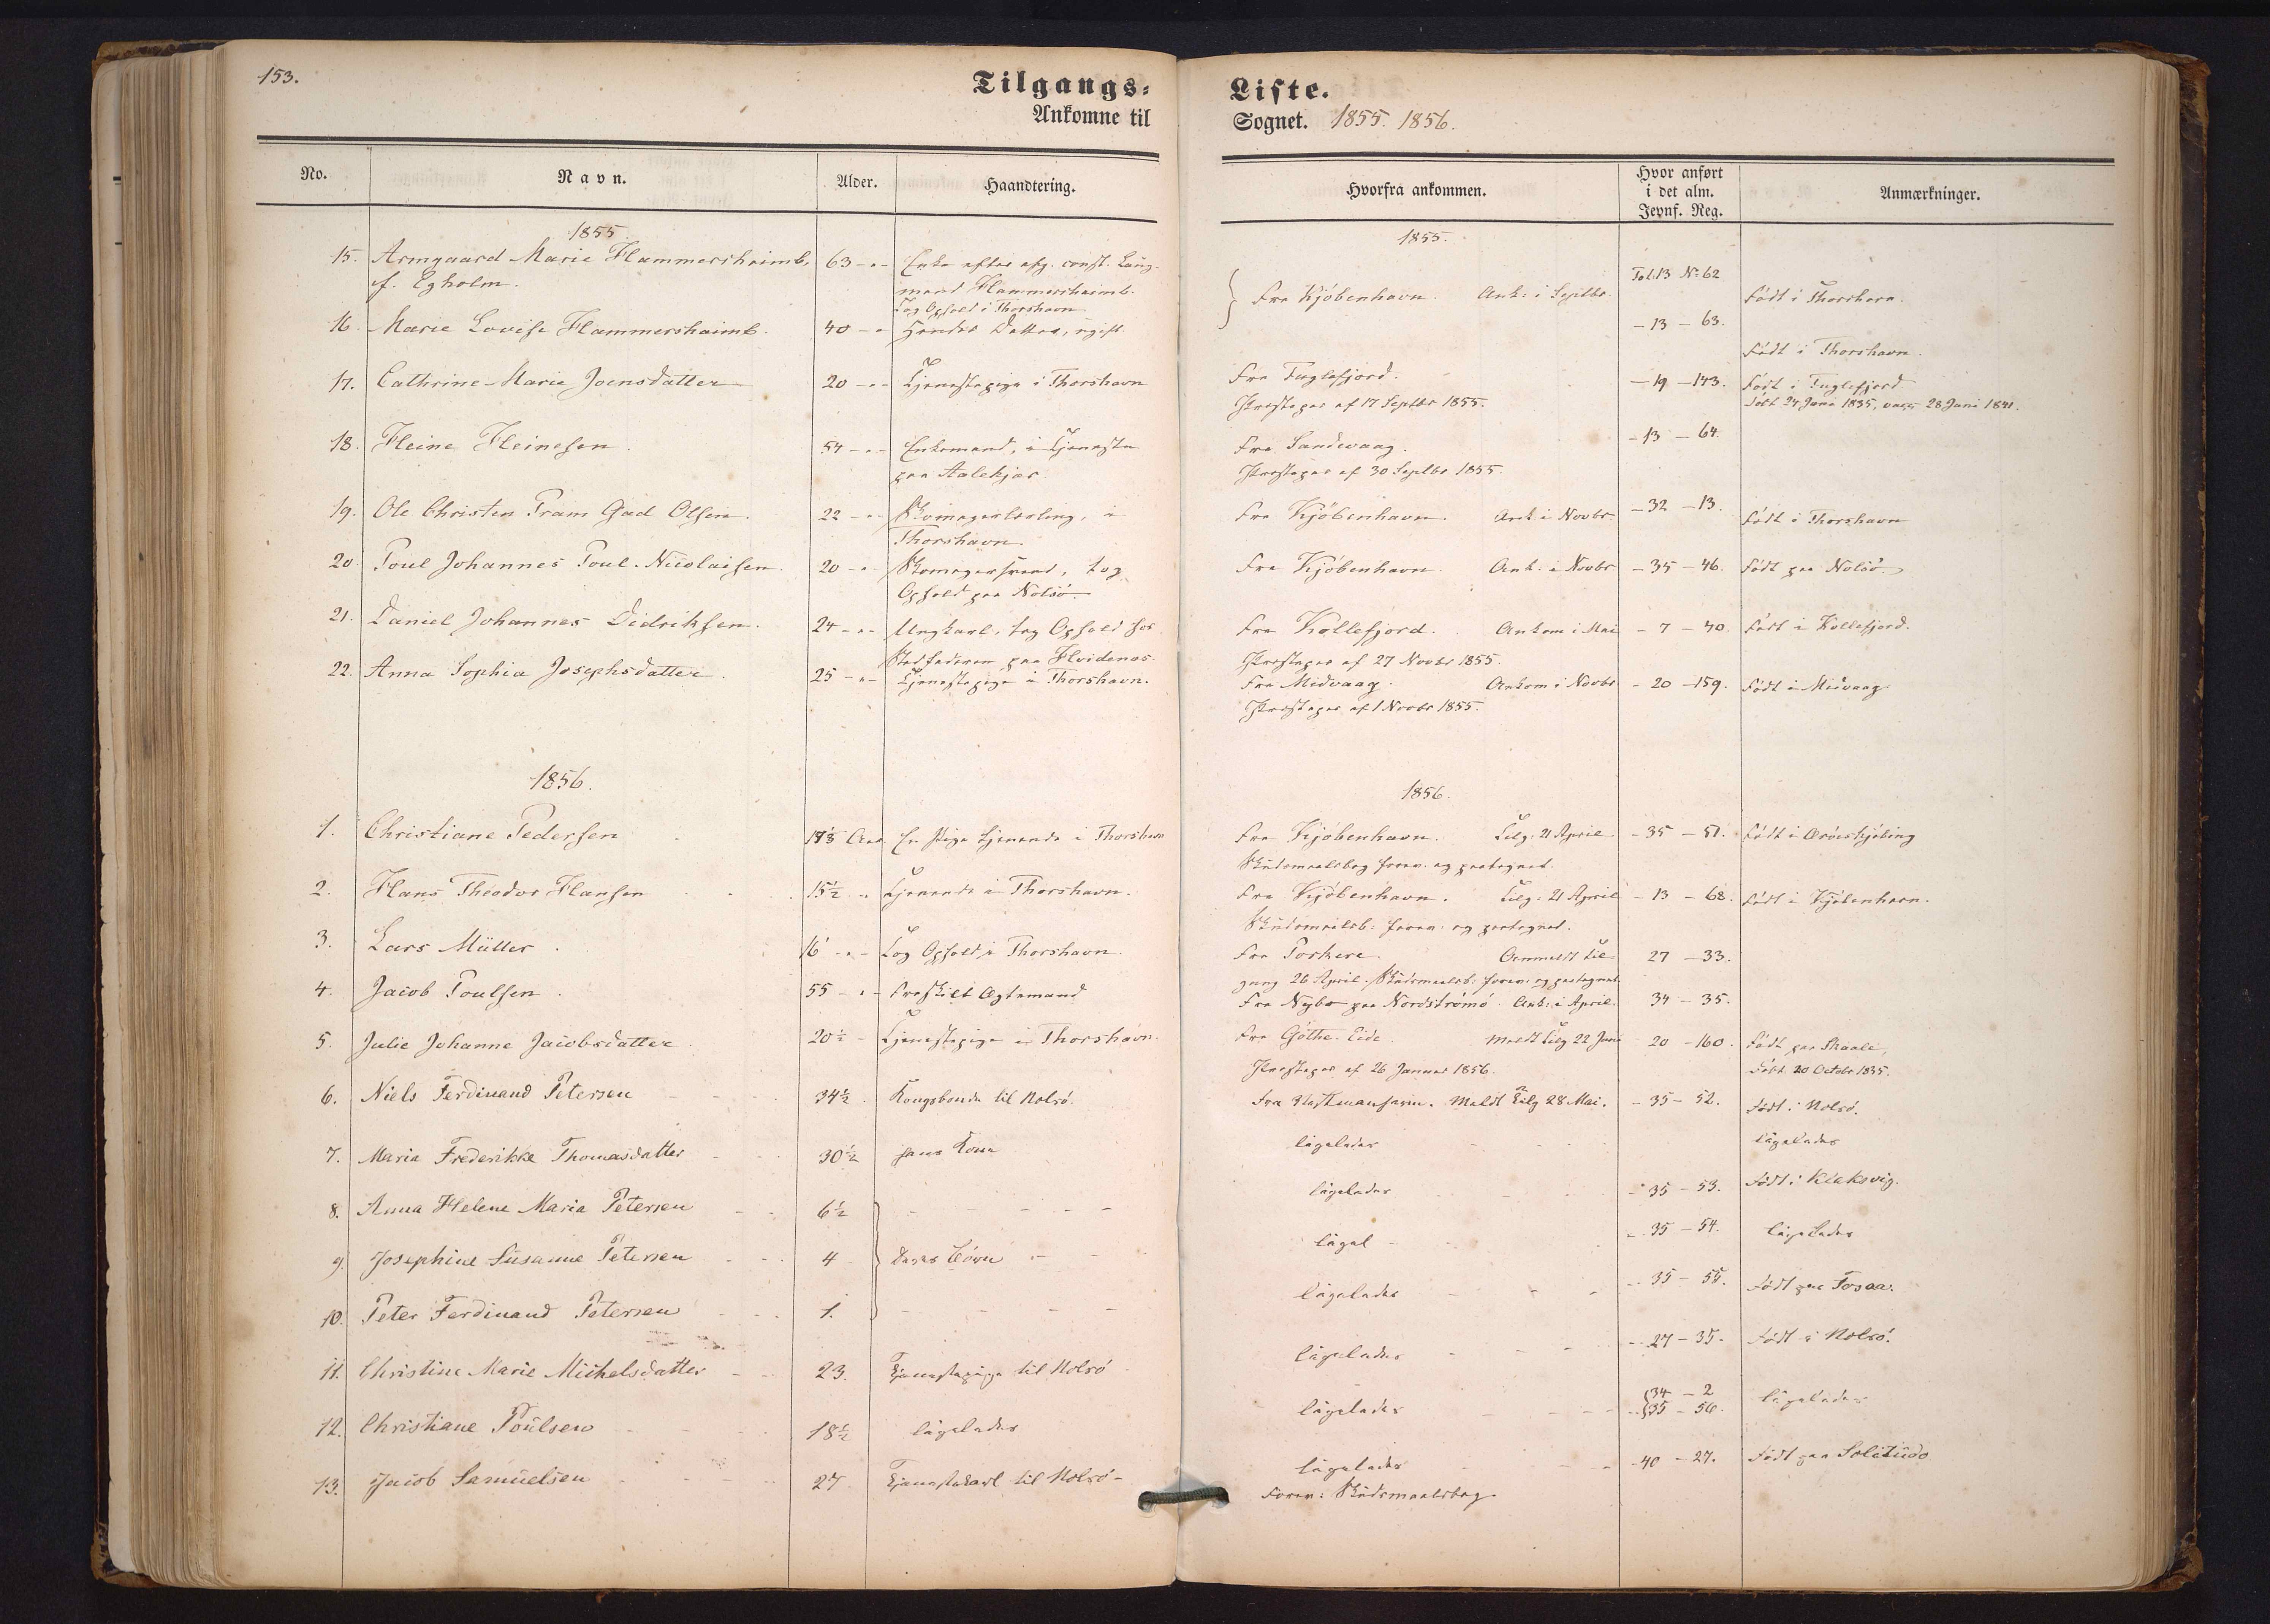 153.
Tilgangs-
Ankomne til
No.
Navn.
Alder.
Haandtering.
1855
15. Armgaard Marie Hammershaimb, 63 -"- Enke efter afg. const. Laug-
f. Egholm. mand Hammershaimb.
Tog Ophold i Thorshavn
16. Marie Lovise Hammershaimb. 40 -"- Hendes Datter, ugift
17. Cathrine Marie Joensdatter 20 -"- Tjenestepige i Thorshavn
18. Heine Heinesen. 54 -"- Enkemand, i Tjeneste
paa Aalekjær
19. Ole Christen Pram Gad Olsen. 22 -"- Skomagerlærling, i
Thorshavn.
20. Poul Johannes Poul-Nicolaisen. 20 -"- Skomagersvend, tog
Ophold paa Nolsö.
21. Daniel Johannes Didriksen. 24 -"- Ungkarl, tog Ophold hos
Stedfaderen paa Hvidenæs.
22. Anna Sophia Josephsdatter. 25 -"- Tjenestepige i Thorshavn.
1856.
1. Christiane Pedersen Aar. En Pige tjenende i Thorshavn
2. Hans Theodor Hansen 15½ " Tjenende i Thorshavn.
3. Lars Müller. 16 -"- Tog Ophold i Thorshavn.
4. Jacob Poulsen. 55 -"- Fraskilt Ægtemand
5. Julie Johanne Jacobsdatter. 20½ - Tjenestepige i Thorshavn.
6. Niels Ferdinand Petersen 34½. Kongsbonde til Nolsö.
7. Maria Frederikke Thomasdatter 30½ hans Kone
8. Anna Helene Maria Petersen 6½
9. Josephine Susanne Petersen 4 deres Börn
10. Peter Ferdinand Petersen 1.
11. Christine Marie Michelsdatter 23. Tjenestepige til Nolsö
12. Christiane Poulsen 18½ ligeledes
13. Jacob Samuelsen 27 Tjenestekarl til Nolsö-
Liste.
Sognet. 1855. 1856.
Hvorfra ankommen.
Hvor anført
i det alm.
Jevnf. Reg.
Anmærkninger.
1855.
Fol. 13 No 62
Fra Kjöbenhavn. Ank: i Septbr. Födt i Thorshavn.
- 13 - 63.
Födt i Thorshavn.
Fra Fuglefjord. - 19 - 143. Födt i Fuglefjord
Præsteper af 17 Septbr 1855. Födt 24 Juni 1835, vacc. 28 Juni 1841.
Fra Sandevaag. - 13 - 64.
Præsteper af 30 Septbr 1855.
Fra Kjöbenhavn. Ank. i Novbr - 32 - 13. Födt i Thorshavn
Fra Kjöbenhavn. Ank: i Novbr - 35 - 46. Födt paa Nolsö.
Fra Kollefjord. Ankom i Mai - 7 - 40. Födt i Kollefjord.
Præsteper af 27 Novbr 1855.
Fra Midvaag. Ankom i Novbr - 20 - 159. Födt i Midvaag.
Præsteper af 1 Novbr 1855.
1856.
Fra Kjöbenhavn. Tilg: 21 April - 35 - 51. Födt i Æröeskjöbing
Skudsmaalsbog forev. og paategnet.
Fra Kjöbenhavn. Tilg. 21 April - 13 - 68. Födt i Kjöbenhavn.
Skudsmaalsb: forev. og paategnet.
Fra Porkere. Anmeldt Til- 27 - 33.
gang 26 April. Skudsmaalsb: forev. og paategnet
Fra Nybo paa Nordströmö. Ank: i April. 34 - 35.
Fra Göthe-Eide. Meldt Tilg 22 Juni 20 - 160. Födt paa Skaale,
Præsteper af 26 Januar 1856. Födt 20 Octobr 1835.
Fra Vestmanhavn. Meldt Tilg 28 Mai. - 35 - 52. Födt i Nolsö.
ligeledes ligeledes
ligeledes - 35 - 53. Födt i Klaksvig.
ligel - 35 - 54. ligeledes
ligeledes - 35 - 55. Födt paa Fosaa.
ligeledes - 27 - 35. Födt i Nolsö.
ligeledes 34 - 2 ligeledes
35 - 56.
ligeledes - 40 - 27. Födt paa Solitúdo
Forev: Skudsmaalsbog